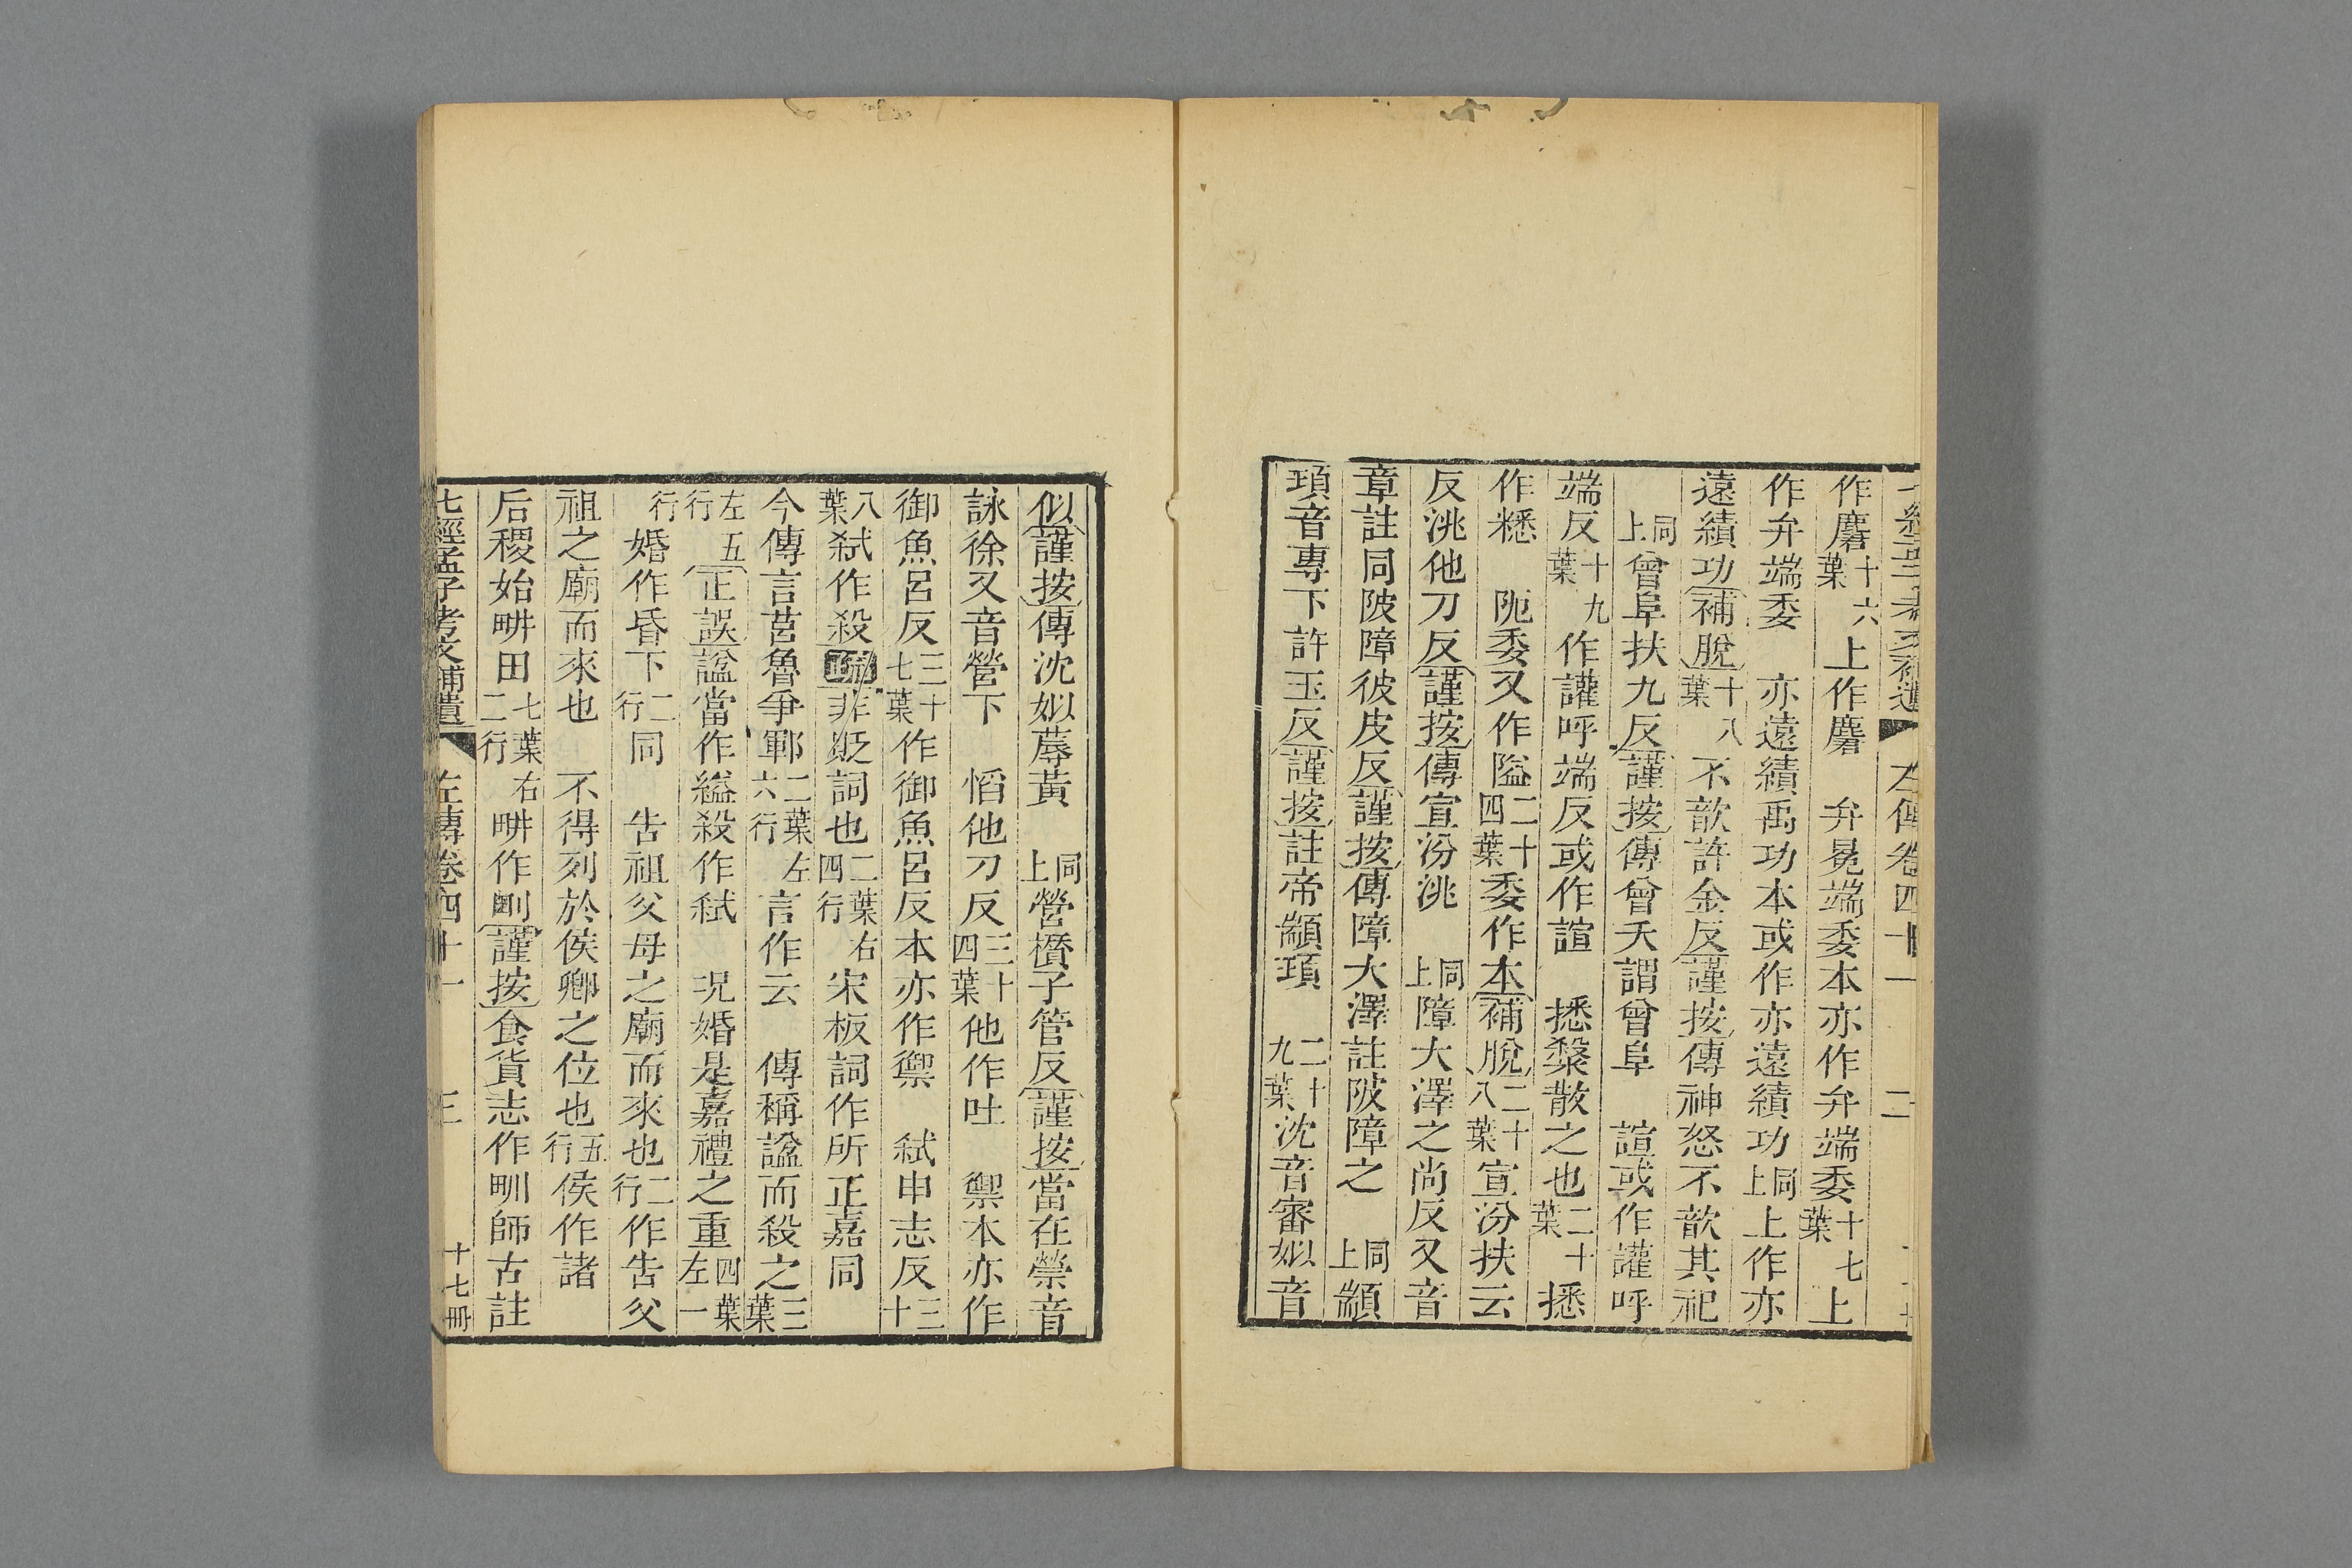 左傳卷四十一 二
作麏十六葉上作麏 弁冕端委本亦作弁端委十七葉上
作弁端委 亦遠績禹功本或作亦遠績功同上上作亦
遠績功補脫十八葉 不歆許金反謹按傳神怒不歆其祀
同上曾阜扶九反謹按傳曾夭謂曾阜 諠或作讙呼
端反十九葉作讙呼端反或作諠 㩓槃散之也二十葉㩓
作㩓 阨委又作隘二十四葉委作本補脫二十八葉宣汾扶云
反洮他刀反謹按傳宣汾洮 同上障大澤之尚反又音
章註同陂障彼皮反謹按傳障大澤註陂障之 同上顓
頊音專下許玉反謹按註帝顓頊 二十九葉沈音審姒音
似謹按傳沈姒蓐黃 同上營攢子管反謹按當在禜音
詠徐又音營下 慆他刀反三十四葉他作吐 禦本亦作
御魚呂反三十七葉作御魚呂反本亦作禦 弒申志反三十
八葉弒作殺疏非貶詞也二葉右四行宋板詞作所正嘉同
今傳言莒魯爭鄆二葉左六行言作云 傳稱謚而殺之三葉
左五行正誤謚當作縊殺作弒 況婚是嘉禮之重四葉左一
行婚作昏下二行同 告祖父母之廟而來也二行作告父
祖之廟而來也 不得列於侯卿之位也五行侯作諸
后稷始畊田七葉右二行畊作甽謹按食貨志作甽師古註
七經孟子考文補遺 左傳卷四十一 三 十七冊